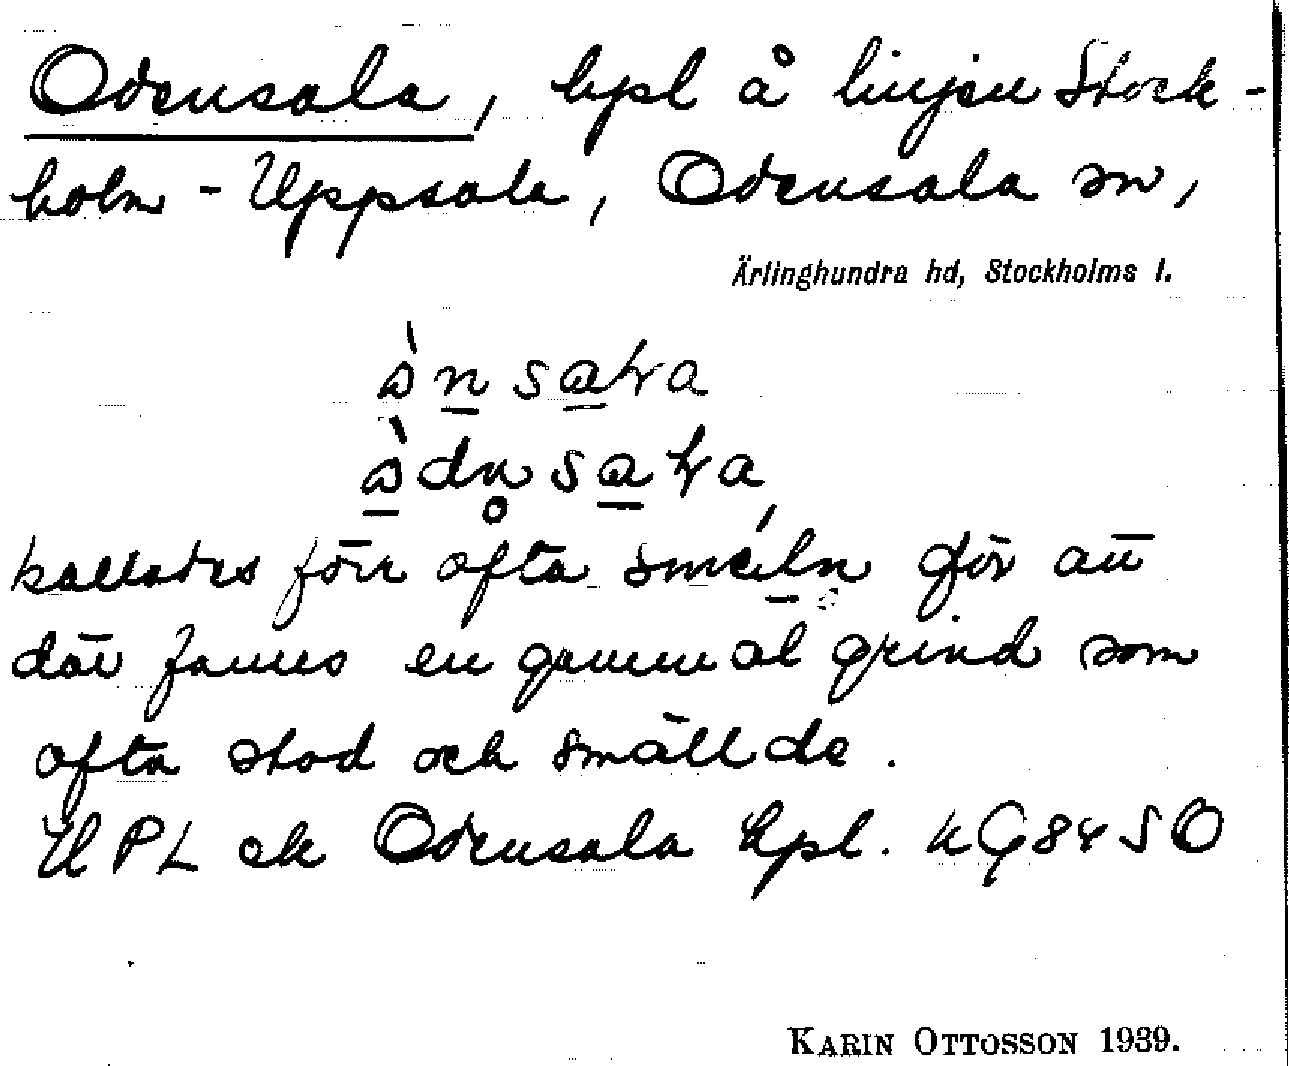 Odensala, hpl å linjen Stock-
holm - Uppsala, Odensala sn,
Ärlinghundra hd, Stockholms l.
kallades förr ofta för att
där fanns en gammal grind som
ofta stod och smällde.
UPL ek Odensala hpl. kG8450
KARIN OTTOSSON 1939.